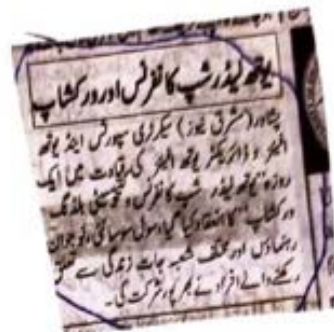 یوتھ لیڈر شپ کانفرنس اور ورکشاپ
پشاور (مشرق نیوز) سیکرٹری سپورٹس اینڈ یوتھ
افیئر و ڈائریکٹر یوتھ افیئر کی قیادت میں ایک
روزہ "یوتھ لیڈر شپ کانفرنس و تحصینی بلڈنگ
ورکشاپ" کا انعقاد کیا گیا، سول سوسائٹی، نوجوان
رہنماؤں اور مختلف شعبہ جات زندگی سے تعلق
رکھنے والے افراد نے بھرپور شرکت کی۔